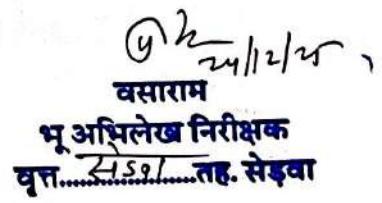 24/12/25
वसाराम
भू अभिलेख निरीक्षक
वृत्त.....सेडवा.....तह. सेड़वा